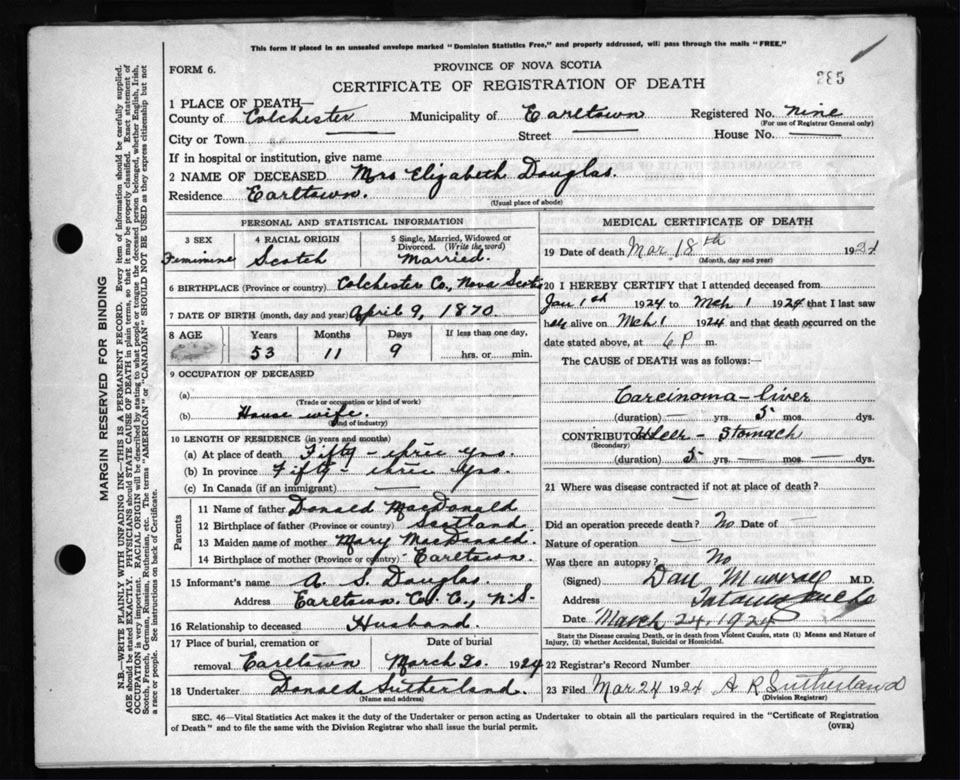 This form if placed in an unsealed envelope marked "Dominion Statistics Free," and properly addressed, will pass through the mails "FREE."
FORM 6.
PROVINCE OF NOVA SCOTIA
CERTIFICATE OF REGISTRATION OF DEATH
285
1 PLACE OF DEATH—
County of Colchester Municipality of Earltown Registered No. nine
(For use of Registrar General only)
City or Town Street — House No. —
If in hospital or institution, give name
2 NAME OF DECEASED Mrs Elizabeth Douglas.
Residence Earltown.
(Usual place of abode)
PERSONAL AND STATISTICAL INFORMATION
3 SEX Feminine
4 RACIAL ORIGIN Scotch
5 Single, Married, Widowed or Divorced. (Write the word) Married.
6 BIRTHPLACE (Province or country) Colchester Co., Nova Scotia
7 DATE OF BIRTH (month, day and year) April 9, 1870.
8 AGE Years Months Days If less than one day,
53 11 9 hrs. or min.
9 OCCUPATION OF DECEASED
(a)
(Trade or occupation or kind of work)
(b) House wife.
(Kind of industry)
10 LENGTH OF RESIDENCE (in years and months)
(a) At place of death Fifty-three yrs.
(b) In province Fifty-three yrs.
(c) In Canada (if an immigrant) —
Parents
11 Name of father Donald MacDonald
12 Birthplace of father (Province or country) Scotland
13 Maiden name of mother Mary MacDonald.
14 Birthplace of mother (Province or country) Earltown.
15 Informant's name A. S. Douglas.
Address Earltown. Col. Co., N.S.
16 Relationship to deceased Husband.
17 Place of burial, cremation or Date of burial
removal Earltown March 20. 1924
18 Undertaker Donald Sutherland.
(Name and address)
MEDICAL CERTIFICATE OF DEATH
19 Date of death Mar 18th 1924
(Month, day and year)
20 I HEREBY CERTIFY that I attended deceased from
Jan 1st 1924 to Mch 1 1924 that I last saw
her alive on Mch 1 1924 and that death occurred on the
date stated above, at 6 P m.
The CAUSE of DEATH was as follows:
Carcinoma - Liver
(duration) — yrs. 5 mos. dys.
CONTRIBUTORY Ulcer - Stomach
(Secondary)
(duration) 5 yrs. — mos. — dys.
21 Where was disease contracted if not at place of death?
—
Did an operation precede death? No Date of —
Nature of operation —
Was there an autopsy? No
(Signed) Dan Murray M.D.
Address Tatamagouche
Date March 24, 1924
State the Disease causing Death, or in death from Violent Causes, state (1) Means and Nature of
Injury, (2) whether Accidental, Suicidal or Homicidal.
22 Registrar's Record Number
23 Filed Mar 24 1924 A R Sutherland
(Division Registrar)
SEC. 46—Vital Statistics Act makes it the duty of the Undertaker or person acting as Undertaker to obtain all the particulars required in the "Certificate of Registration
of Death" and to file the same with the Division Registrar who shall issue the burial permit.
(OVER)
MARGIN RESERVED FOR BINDING
N.B.—WRITE PLAINLY WITH UNFADING INK—THIS IS A PERMANENT RECORD. Every item of information should be carefully supplied.
AGE should be stated EXACTLY. PHYSICIANS should STATE CAUSE OF DEATH in plain terms, so that it may be properly classified. Exact statement of
OCCUPATION is very important. RACIAL ORIGIN will be described by stating to what people or tongue the deceased person belonged, whether English, Irish,
Scotch, French, German, Russian, Ruthenian, etc. The terms "AMERICAN" or "CANADIAN" SHOULD NOT BE USED as they express citizenship but not
a race or people. See instructions on back of Certificate.